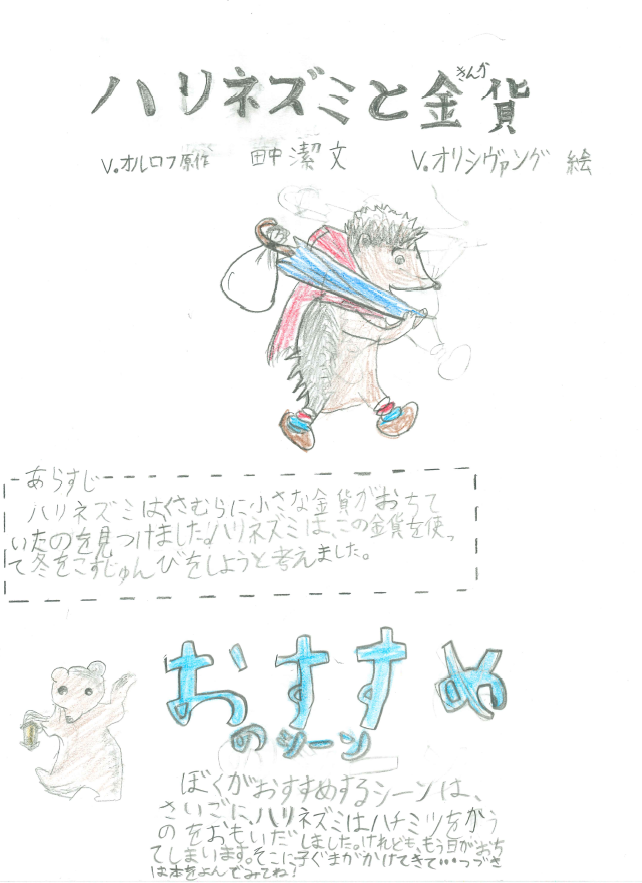 ハリネズミと金貨
きんか
V.オルロフ原作 田中潔文 V.オリシヴァング 絵
あらすじ
ハリネズミはくさむらに小さな金貨がおちて
いたのを見つけました。ハリネズミは、この金貨を使っ
て冬をこすじゅんびをしようと考えました。
おすすめ
のシーン
ぼくがおすすめするシーンは、
さいごに、ハリネズミはハチミツをかう
のをおもいだしました。けれども、もう日がおち
てしまいます。そこに子ぐまがかけてきて…つづき
は本をよんでみてね!